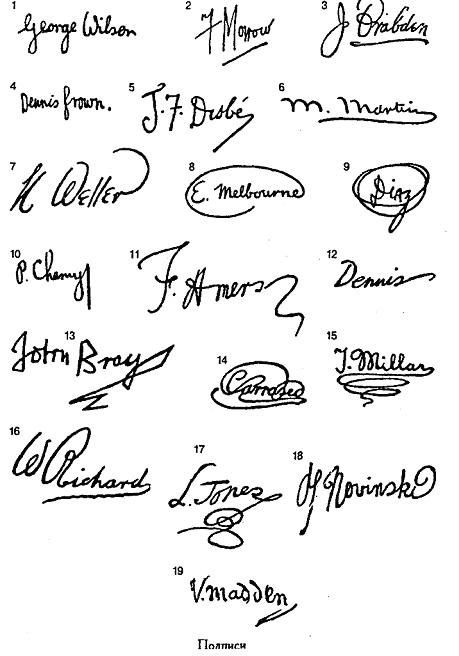 1 George Wilson
2 F Morrow
3 J Drabden
4 Dennis frown.
5 J. F. Dusbé
6 M. Martin
7 K Weller
8 E. Melbourne
9 Diaz
10 P. Chamy
11 F. Amers
12 Dennis
13 John Bray
14 Carrased
15 J. Millar
16 W Richard
17 L. Jones
18 H. Novinski
19 V. madden
Подписи